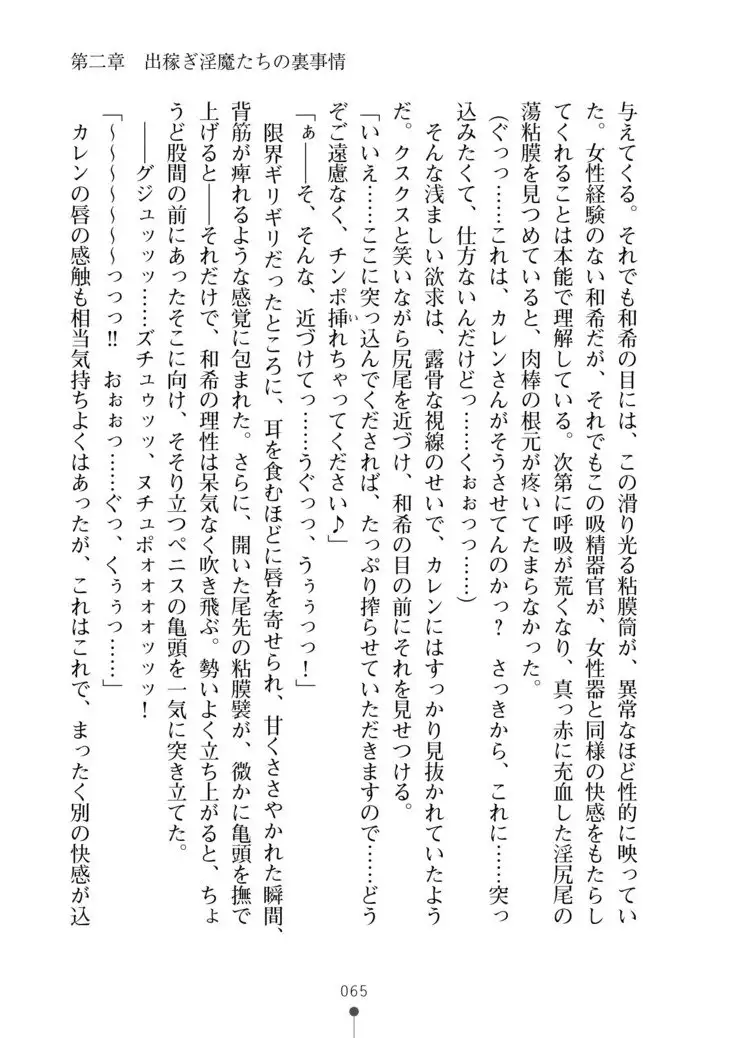 第二章　出稼ぎ淫魔たちの裏事情
与えてくる。それでも和希の目には、この滑り光る粘膜筒が、異常なほど性的に映ってい
た。女性経験のない和希だが、それでもこの吸精器官が、女性器と同様の快感をもたらし
てくれることは本能で理解している。次第に呼吸が荒くなり、真っ赤に充血した淫尻尾の
蕩粘膜を見つめていると、肉棒の根元が疼いてたまらなかった。
(ぐっっ……これは、カレンさんがそうさせてんのかっ？　さっきから、これに……突っ
込みたくて、仕方ないんだけどっ……くぉぉっっ……)
そんな浅ましい欲求は、露骨な視線のせいで、カレンにはすっかり見抜かれていたよう
だ。クスクスと笑いながら尻尾を近づけ、和希の目の前にそれを見せつける。
「いいえ……ここに突っ込んでくだされば、たっぷり搾らせていただきますので……どう
ぞご遠慮なく、チンポ挿れちゃってください♪」
「ぁ――そ、そんな、近づけてっ……うぐっっ、うぅぅっっ！」
限界ギリギリだったところに、耳を食むほどに唇を寄せられ、甘くささやかれた瞬間、
背筋が痺れるような感覚に包まれた。さらに、開いた尾先の粘膜襞が、微かに亀頭を撫で
上げると――それだけで、和希の理性は呆気なく吹き飛ぶ。勢いよく立ち上がると、ちょ
うど股間の前にあったそこに向け、そそり立つペニスの亀頭を一気に突き立てた。
――グジュッッッ……ズチュゥッッ、ヌチュポォォォォッッッ！
「～～～～～～～っっっ!!　おぉぉっ……ぐっ、くぅぅっ……」
カレンの唇の感触も相当気持ちよくはあったが、これはこれで、まったく別の快感が込
065